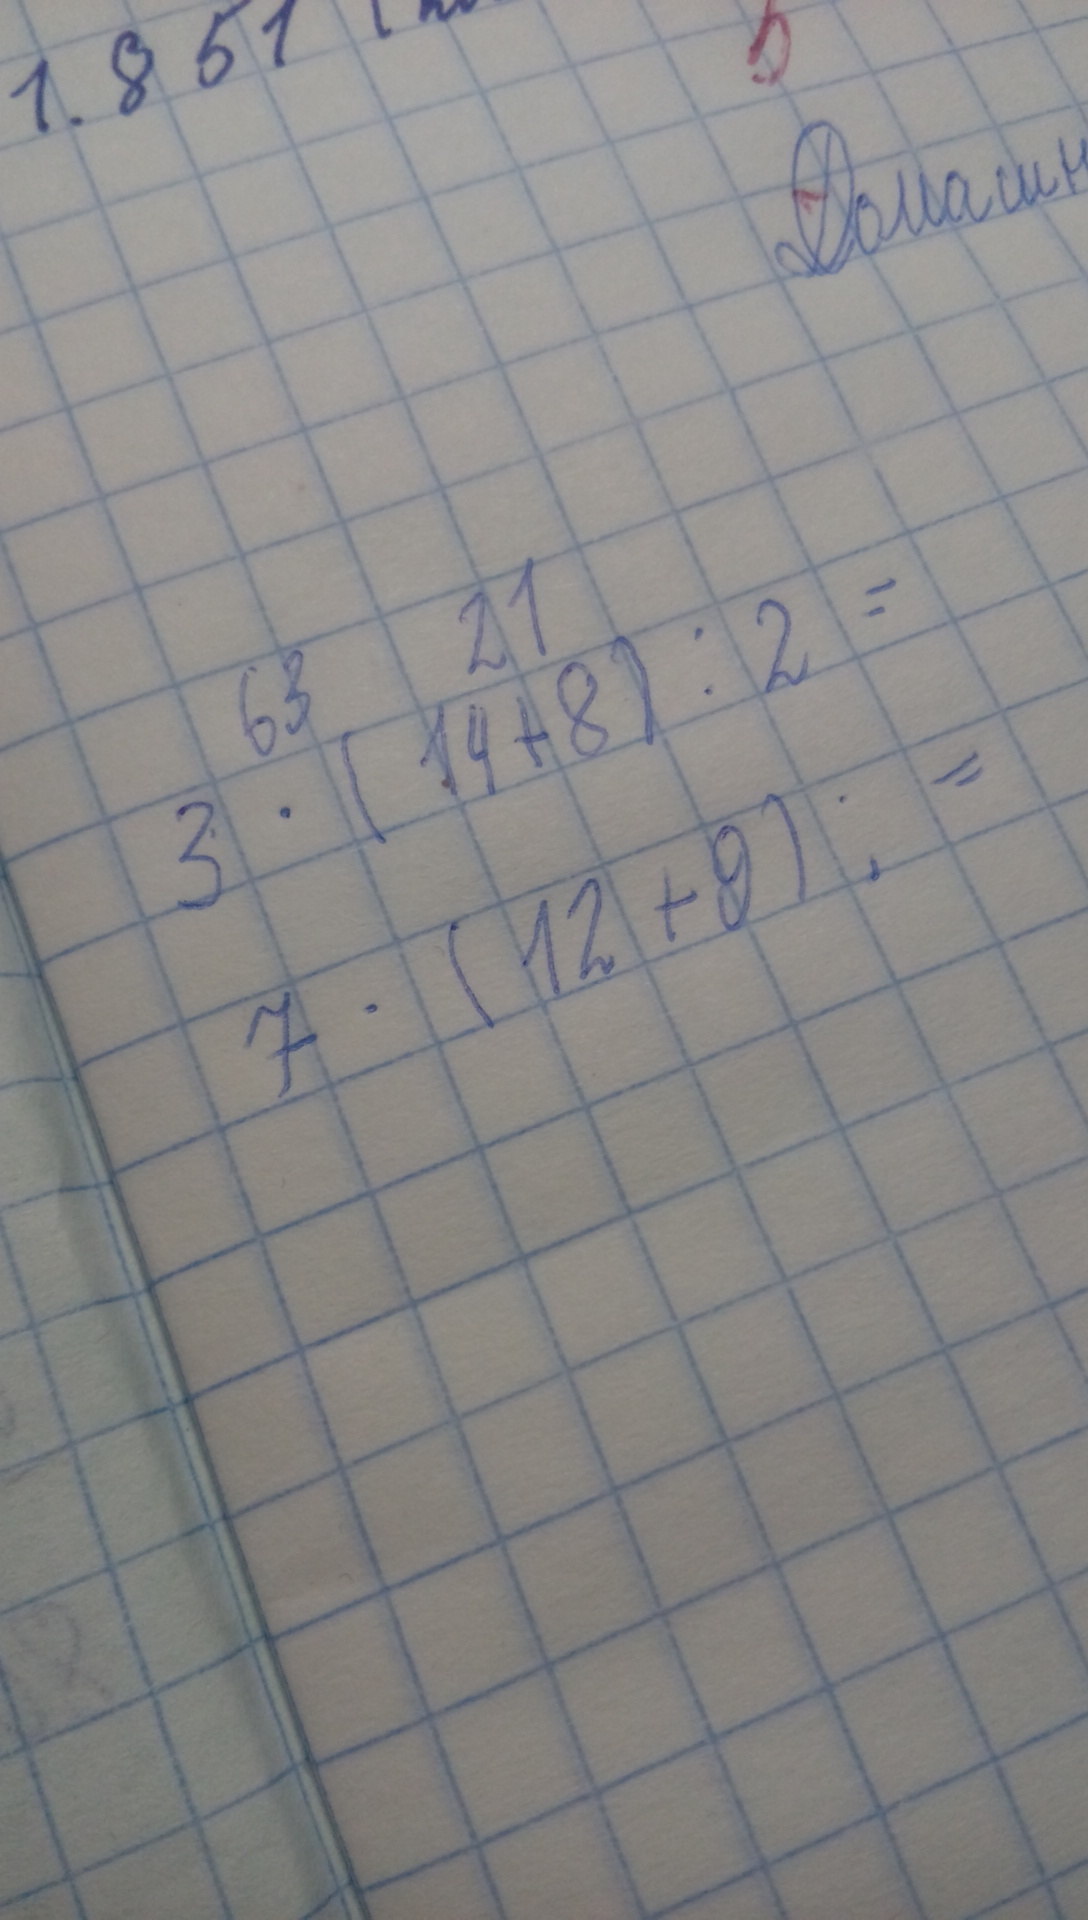 1. 851
5
Домашн
63 21
3 · (14+8) : 2 =
7 · (12+9) : =